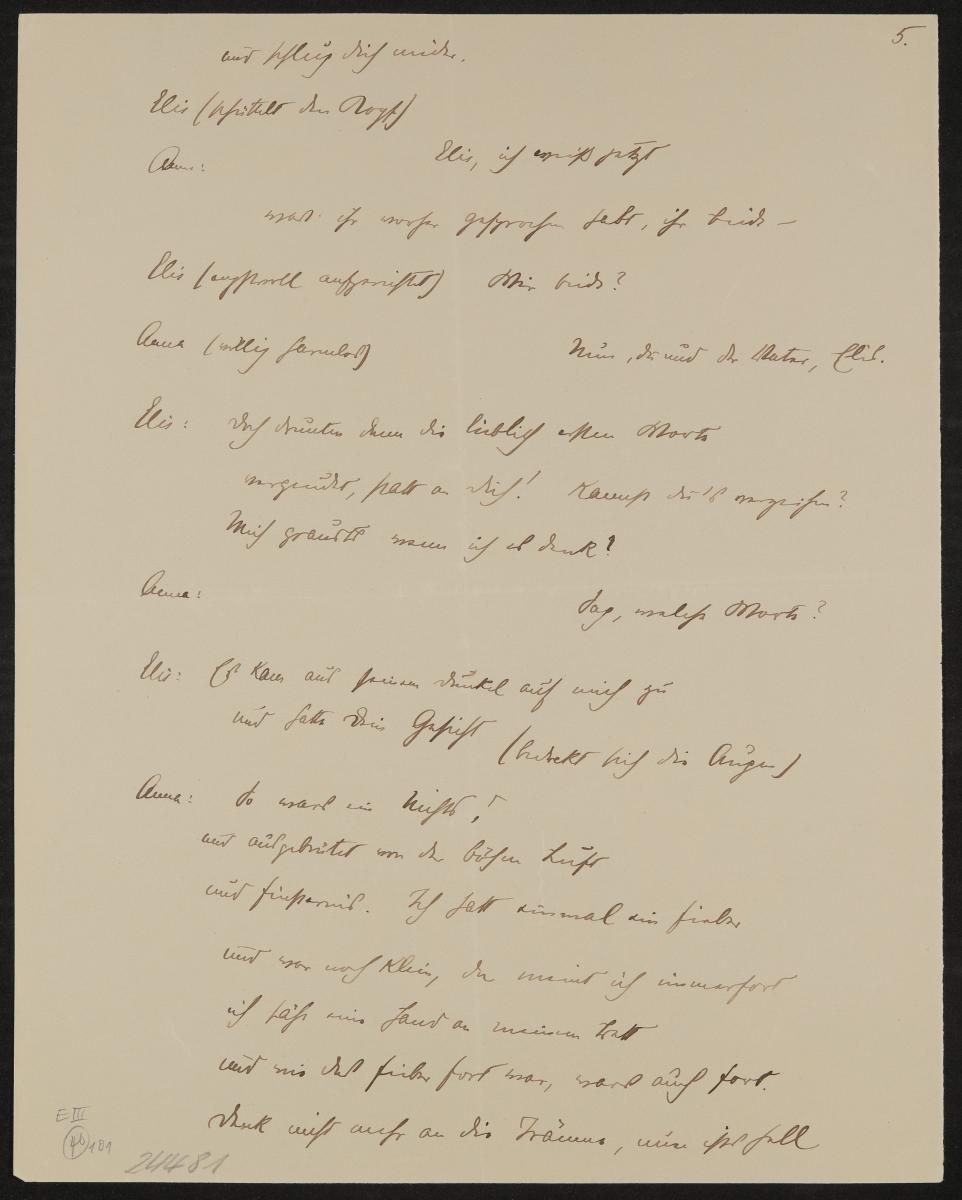 5.
und schlug dich nieder.
Elis (schüttelt den Kopf)
Elis, ich weiß jetzt
Anna:
was ihr vorher gesprochen habt, ihr beide –
Elis (angstvoll aufgerichtet) Wir beide?
Anna (völlig harmlos) Nun, du und der Vater, Elis.
Elis: Doch drunten denn die lieblich ersten Worte
vergeudet, statt an dich! Kannst du's verzeihen?
Mich graust's wenn ich es denk!
Anna: Sag, welche Worte?
Elis: Es kam aus seinem Dunkel auf mich zu
und hatte dein Gesicht (bedeckt sich die Augen)
Anna: So war's ein Nichts,!
und ausgebrütet von der bösen Luft
und Finsternis. Ich hatt einmal ein Fieber
und war noch klein, da meint ich immerfort
ich säh eine Hand an meinem Bett
und wie das Fieber fort war, war's auch fort.
Denk nicht mehr an die Träume, nun ists hell
E III
46 101
24481